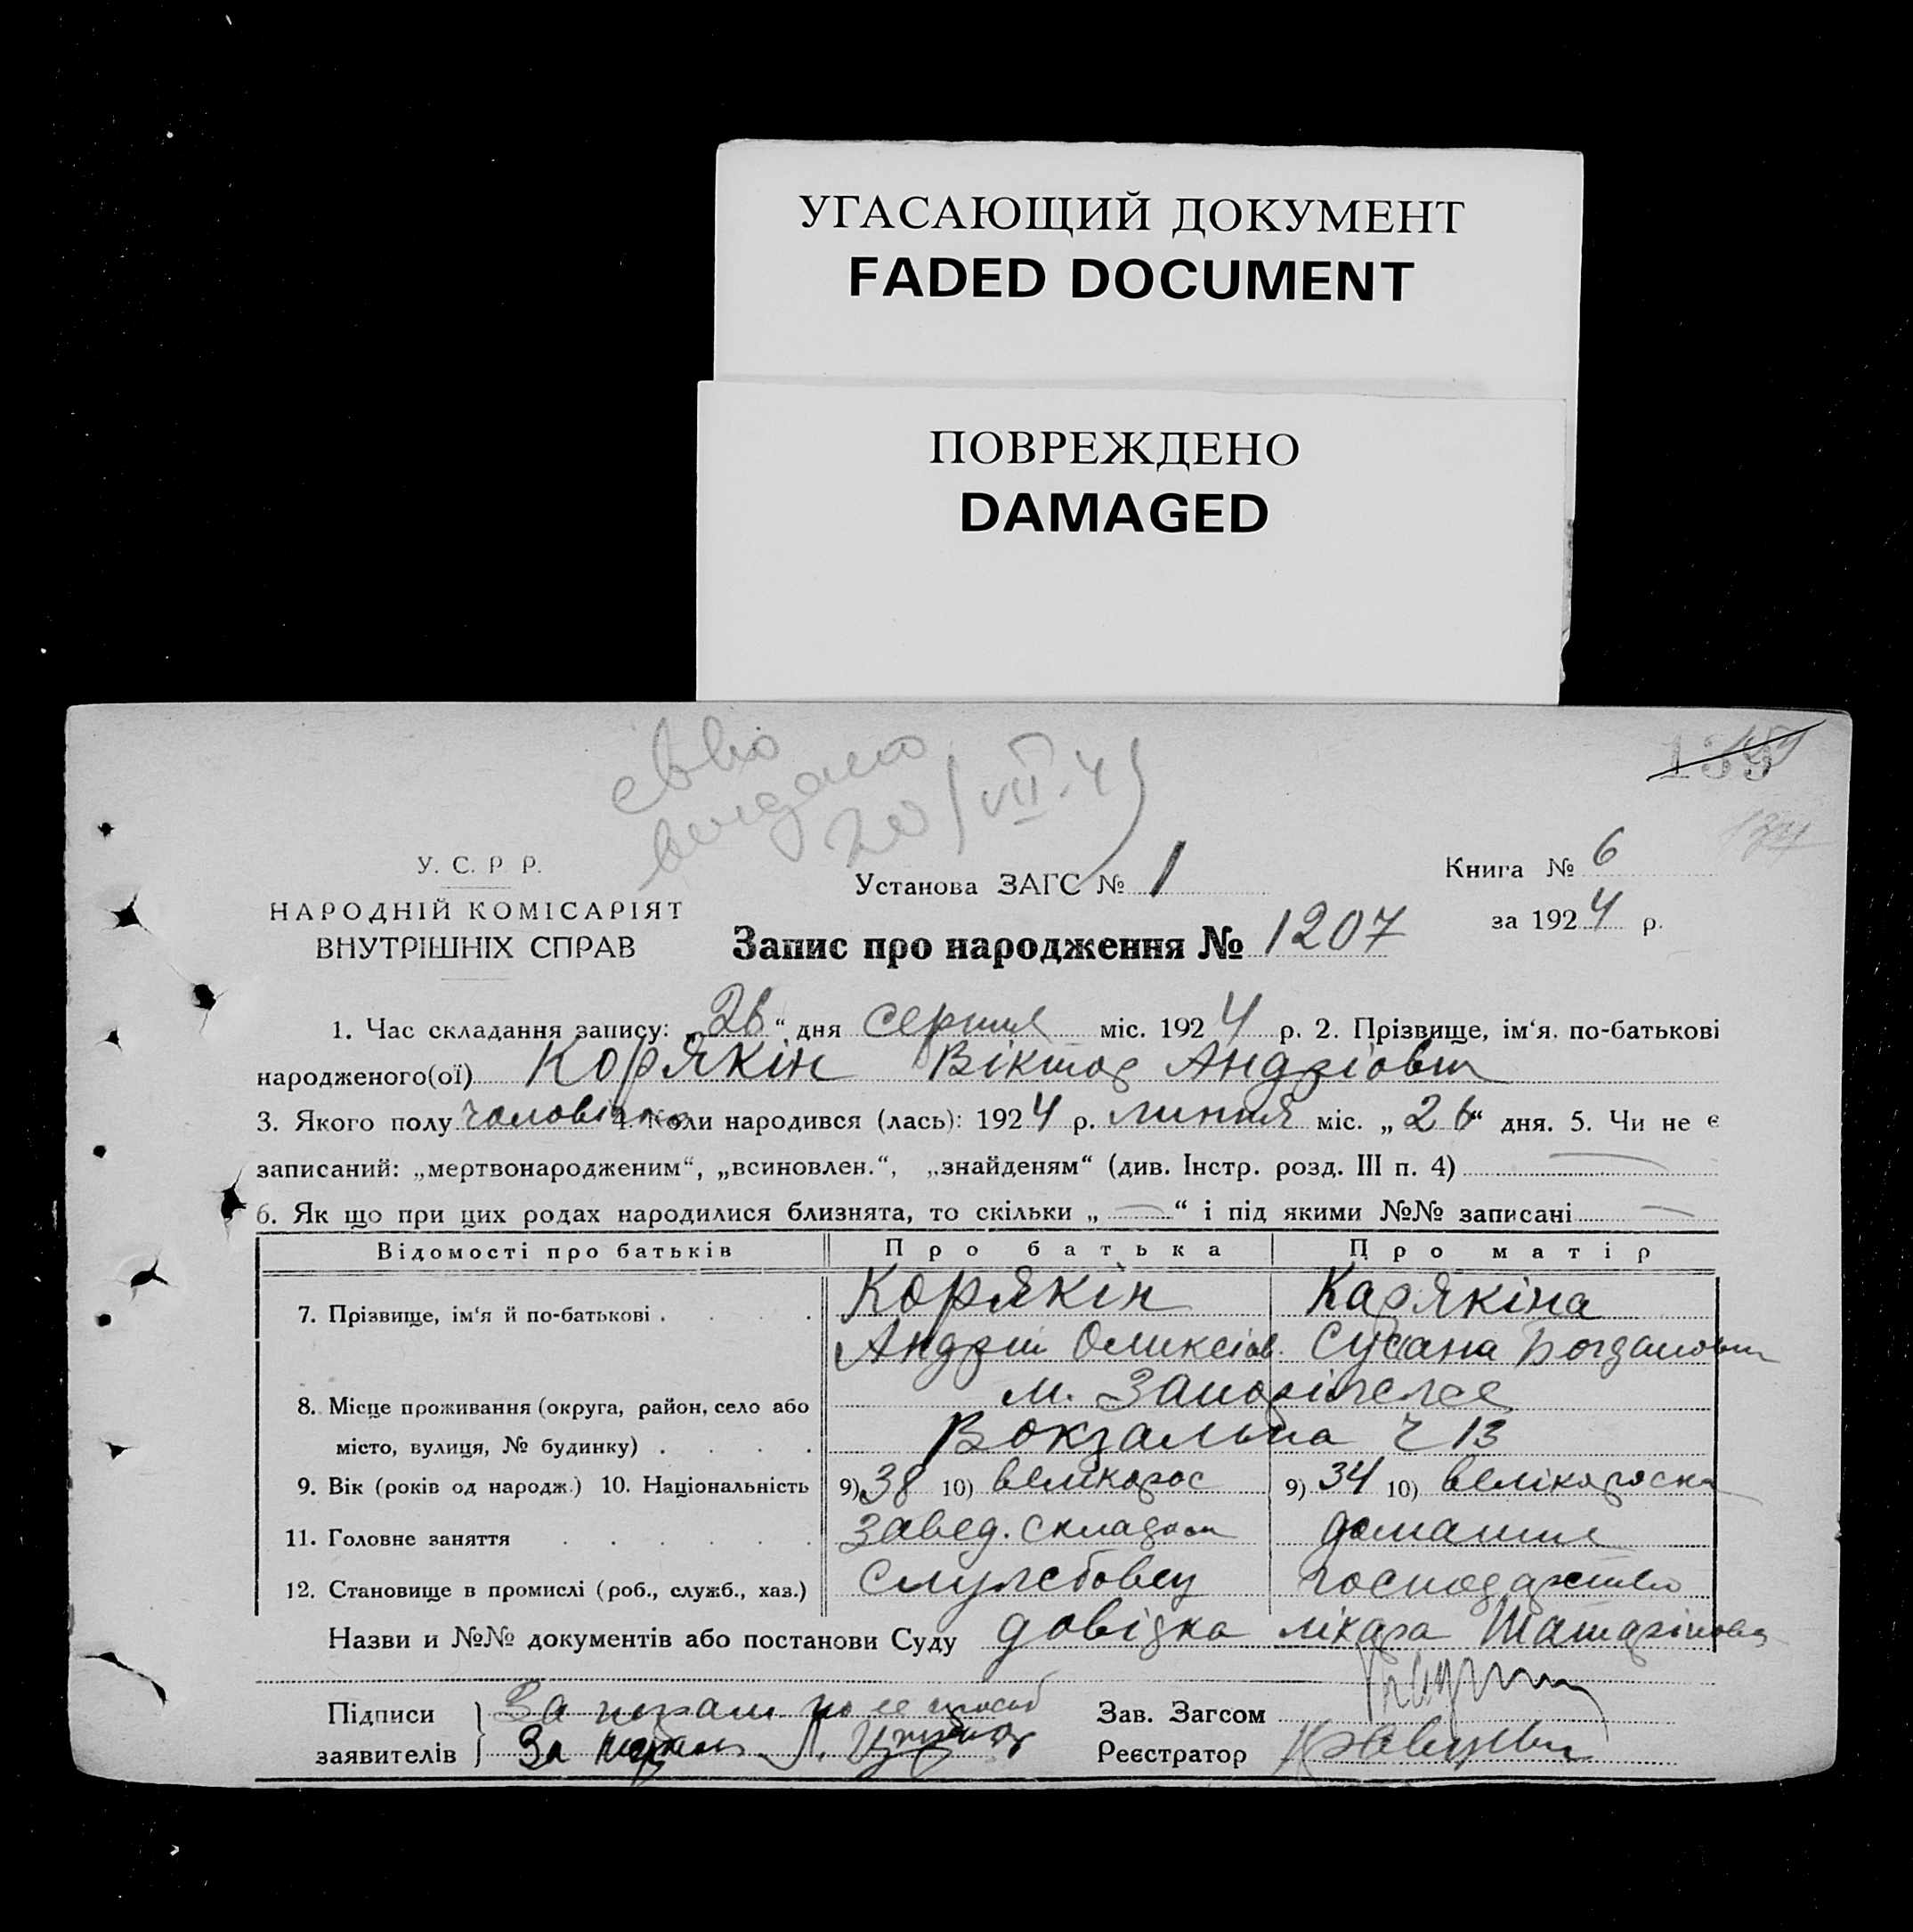 УГАСАЮЩИЙ ДОКУМЕНТ
FADED DOCUMENT
ПОВРЕЖДЕНО
DAMAGED
20/VII-4
У. С. Р Р.
НАРОДНІЙ КОМІСАРІЯТ
ВНУТРІШНІХ СПРАВ
Установа ЗАГС № 1
Книга № 6
за 1924 р.
Запис про народження № 1207
1. Час складання запису: „26“ дня серпня міс. 1924 р. 2. Прізвище, ім‘я. по-батькові
народженого(ої) Корякін Віктор Андріович
3. Якого полу чоловічого 4. Коли народився (лась): 1924 р. липня міс. „26“ дня. 5. Чи не є
записаний: „мертвонародженим“, „всиновлен.“, „знайденям“ (див. Інстр. розд. III п. 4) —
6. Як що при цих родах народилися близнята, то скільки „—“ і під якими №№ записані —
Відомості про батьків Про батька Про матір
7. Прізвище, ім‘я й по-батькові . . . . Корякін Карякіна
Андрій Оликсіов. Сусана Богдановн
8. Місце проживання (округа, район, село або м. Запоріжжя
місто, вулиця, № будинку) . . . . Вокзальна ч 13
9. Вік (років од народж.) 10. Національність 9) 38 10) великорос 9) 34 10) велікороска
11. Головне заняття . . . . . . завед. складом домашнє
12. Становище в промислі (роб., служб., хаз.) служебовец господарство
Назви и №№ документів або постанови Суду довідка лікаря
Підписи За
заявителів За
Зав. Загсом
Реєстратор